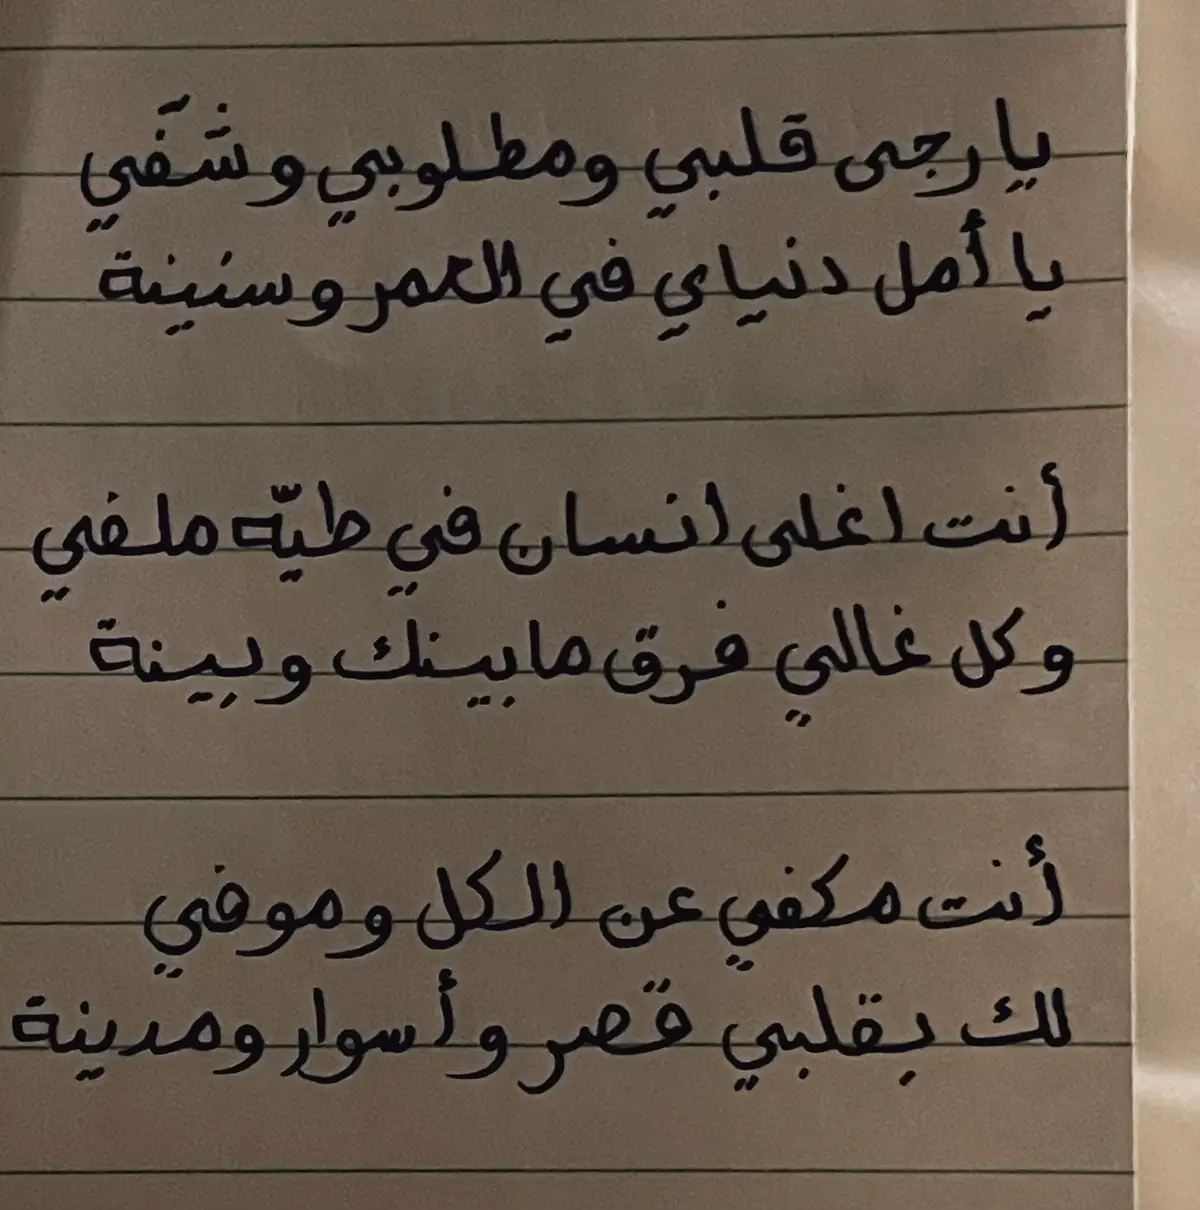 يا رجى قلبي ومطلوبي وشفّي
يا أمل دنياي في العمر وسنينة
أنت اغلى انسان في طيّه ملفي
وكل غالي فرق مابينك وبينة
أنت مكفي عن الكل وموفي
لك بقلبي قصر وأسوار ومدينة